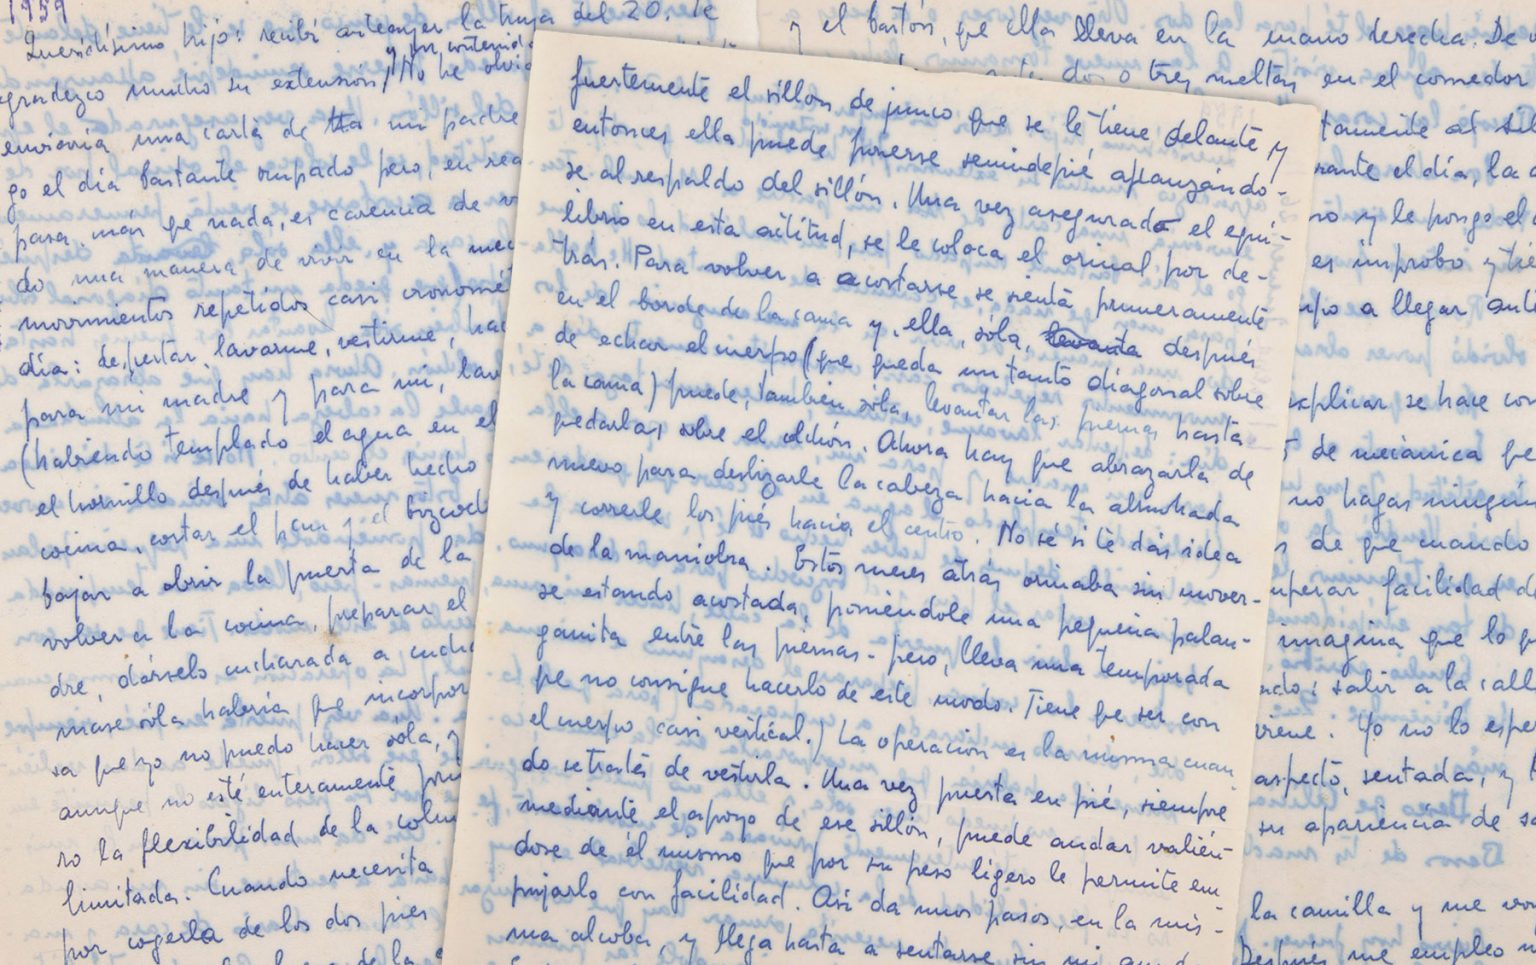 1959
Queridísimo hijo: recibí anteayer la tuya del 20. Te
y por contenido
agradezco mucho su extensión, No he olvid
enviaría una carta de un padre
go el día bastante ocupado pero, en rea
pasa, más qe nada, es carencia de
do una manera de vivir en la mec
movimientos repetidos casi cronomé
día: despertar, lavarme, vestirme, hac
para mi madre y para mí, lava
(habiendo templado el agua en el
el hornillo después de haber hecho
cocina, cortar el pan y el bizcoch
bajar a abrir la puerta de la
volver a la cocina, preparar el
dre, dárselo cucharada a cucha
marse sóla habría que incorpor
sa que yo no puedo hacer sóla, y
aunque no esté enteramente
ro la flexibilidad de la colum
limitada. Cuando necesita
por cogerla de los dos pies
de la
fuertemente el sillón de junco que se le tiene delante y
entonces ella puede ponerse semidepié afianzándo-
se al respaldo del sillón. Una vez asegurado el equi-
librio en esta actitud, se le coloca el orinal por de-
trás. Para volver a acostarse, se sienta primeramente
en el borde de la cama y, ella, sóla, levanta después
de echar el cuerpo (que queda un tanto diagonal sobre
la cama) puede, también sóla, levantar las piernas hasta
ponerlas sobre el colchón. Ahora hay que abrazarla de
nuevo para deslizarle la cabeza hacia la almohada
y correrle los piés hacia el centro. No sé si te dás idea
de la maniobra. Estos meses atrás orinaba sin mover-
se estando acostada, poniéndole una pequeña palan-
ganita entre las piernas - pero, lleva una temporada
qe no consigue hacerlo de este modo. Tiene qe ser con
el cuerpo casi vertical.) La operación es la misma cuan
do se trata de vestirla. Una vez puesta en pié, siempre
mediante el apoyo de ese sillón, puede andar valién
dose de él mismo que por su peso ligero le permite em
pujarlo con facilidad. Así da unos pasos, en la mis-
ma alcoba, y llega hasta a sentarse sin mi
y el bastón, que ella lleva en la mano derecha. De
dos o tres vueltas en el comedor
tamente al sill
rante el día, la
y le pongo el
es ímprobo y tie
po a llegar
explicar se hace
de mecánica pe
no hagas ningún
de que cuando
uperar facilidad de
imagina que lo
ndo: salir a la call
viene. Yo no lo espe
aspecto, sentada, y
su apariencia de
la camilla y me
Después me empleo